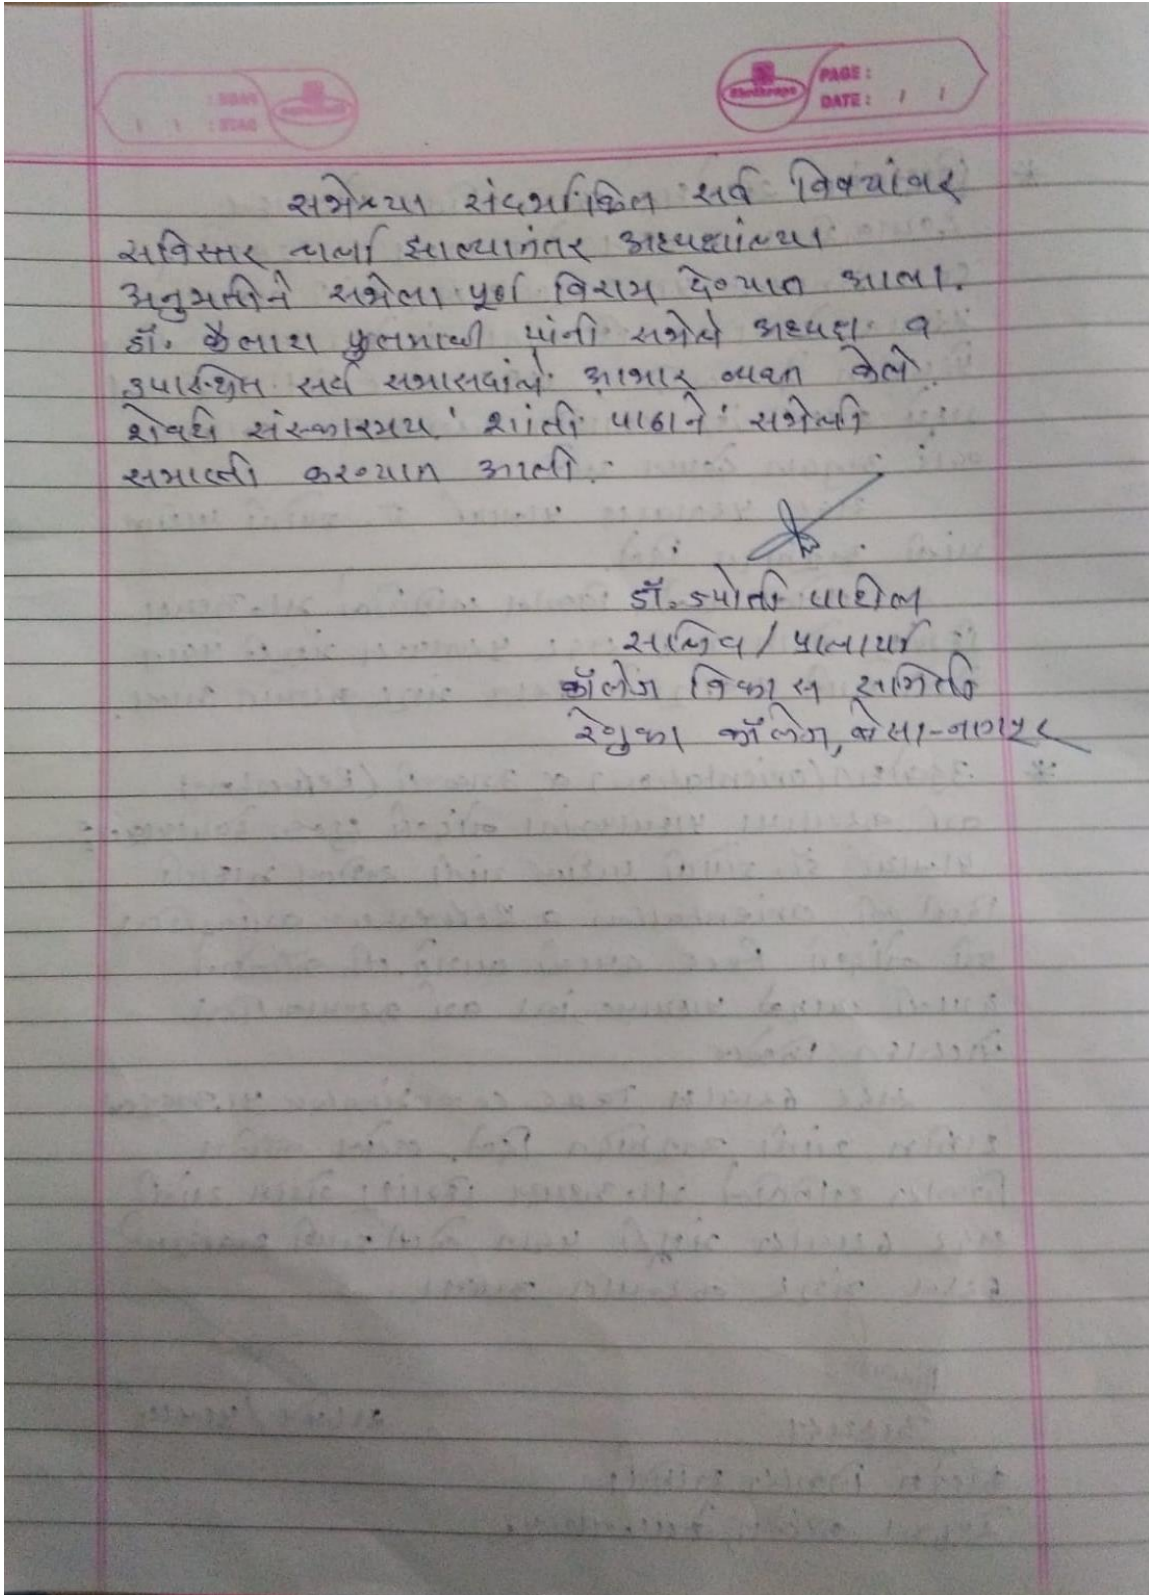 PAGE :
DATE : / /
सभेच्या संदर्भाकित सर्व विषयांवर
सविस्तर चर्चा झाल्यानंतर अध्यक्षांच्या
अनुमतीने सभेला पूर्ण विराम देण्यात आला.
डॉ. कैलाश फुलमाळी यांनी सभेचे अध्यक्ष व
उपास्थित सर्व सभासदांचे आभार व्यक्त केले.
शेवटी संस्कारमय शांती पाठाने सभेची
समाप्ती करण्यात आली.
डॉ. ज्योती पाटील
सचिव / प्राचार्या
कॉलेज विकास समिति
रेणुका कॉलेज, बेसा-नागपूर